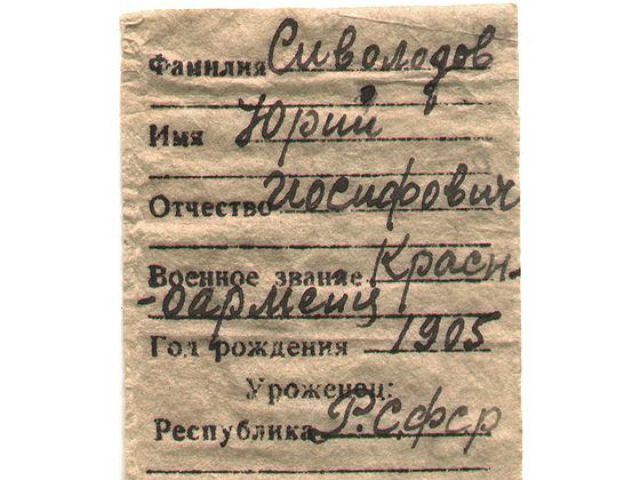 Фамилия Сиволодов
Имя Юрий
Отчество Иосифович
Военное звание Красн-
-оармеиц
Год рождения 1905
Уроженец:
Республика Р.С.Ф.С.Р